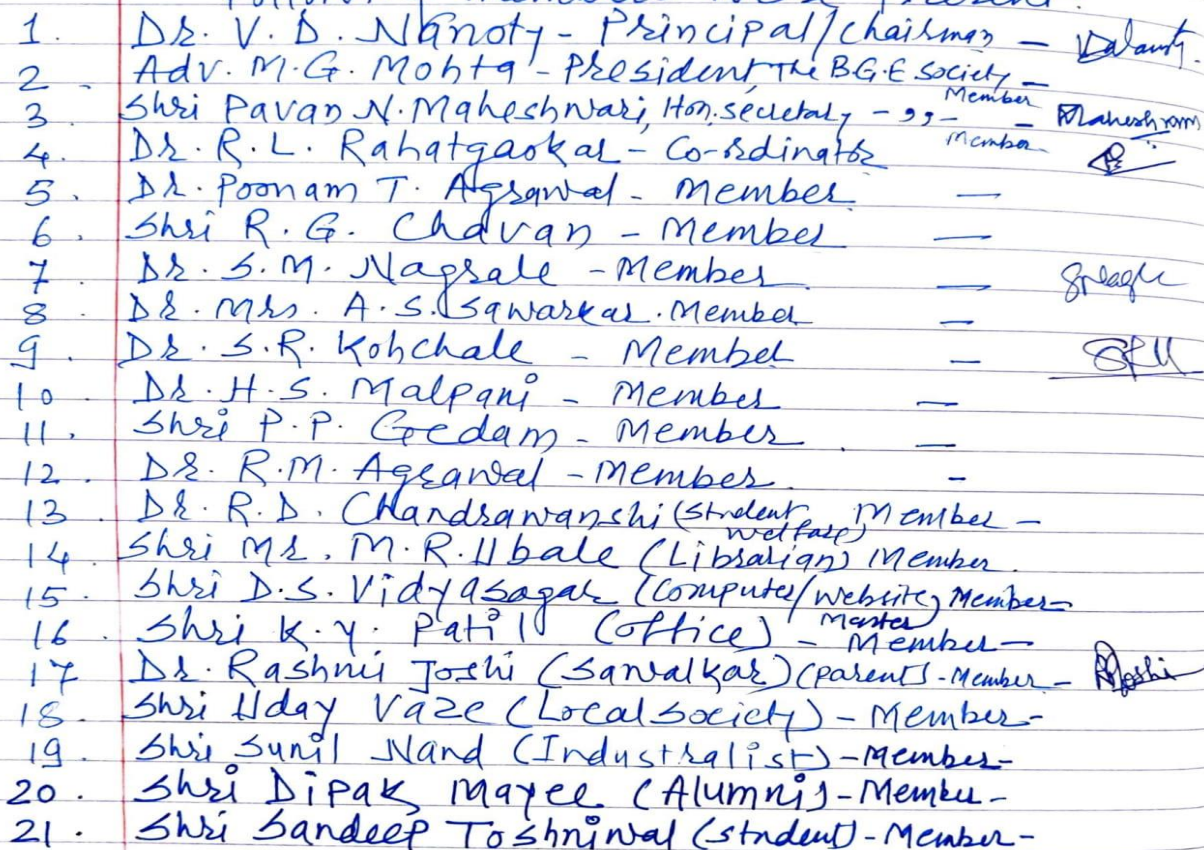 Present.
1. Dr. V. D. Nanoty - Principal/Chairman -
2. Adv. M.G. Mohta - President The B.G.E Society - Member
3. Shri Pavan N. Maheshwari, Hon. Secretary - ,, - Member - Maheshwari
4. Dr. R. L. Rahatgaokar - Co-ordinator
5. Dr. Poonam T. Agrawal - Member -
6. Shri R. G. Chavan - Member -
7. Dr. S. M. Nagrale - Member -
8. Dr. Mrs. A. S. Sawarkar. Member -
9. Dr. S.R. Kohchale - Member -
10. Dr. H.S. Malpani - Member -
11. Shri P.P. Gedam - Member -
12. Dr. R.M. Agrawal - Member -
13. Dr. R.D. Chandrawanshi (Student Welfare) Member -
14. Shri Mr. M.R. Ubale (Librarian) Member
15. Shri D.S. Vidyasagar (Computer/Website Master) Member -
16. Shri K.Y. Patil (Office) - Member -
17. Dr. Rashmi Joshi (Sawalkar) (Parent) - Member - Joshi
18. Shri Uday Vaze (Local Society) - Member -
19. Shri Sunil Nand (Industralist) - Member -
20. Shri Dipak Mayee (Alumni) - Member -
21. Shri Sandeep Toshniwal (Student) - Member -